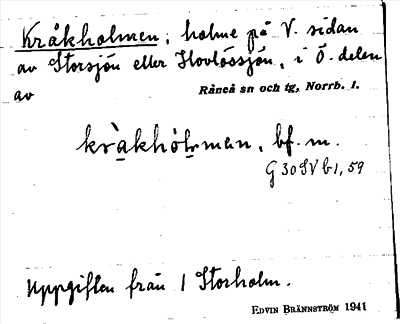 Kråkholmen, holme på V. sidan
av Storsjön eller Hovlössjön, i Ö. delen
av
Råneå sn och tg, Norrb. l.
kràkhólman, bf. m.
G 30 SV b 1, 59
Uppgiften från 1 Storholm.
EDVIN BRÄNNSTRÖM 1941